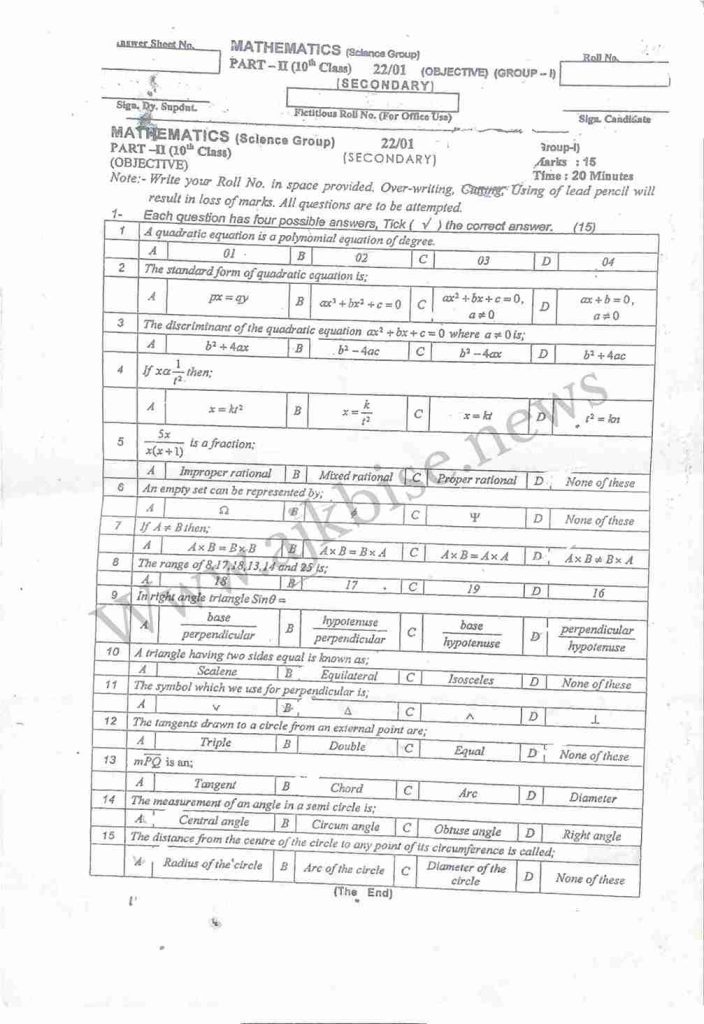 Answer Sheet No.
MATHEMATICS (Science Group)
Roll No.
PART – II (10th Class) 22/01 (OBJECTIVE) (GROUP – I)
(SECONDARY)
Sign. Dy. Supdnt.
Fictitious Roll No. (For Office Use)
Sign. Candidate
MATHEMATICS (Science Group) 22/01 Group-I)
PART –II (10th Class) (SECONDARY) Marks : 15
(OBJECTIVE) Time : 20 Minutes
Note:- Write your Roll No. in space provided. Over-writing, Cutting, Using of lead pencil will
result in loss of marks. All questions are to be attempted.
1- Each question has four possible answers, Tick ( √ ) the correct answer. (15)
1 A quadratic equation is a polynomial equation of degree.
A 01 B 02 C 03 D 04
2 The standard form of quadratic equation is;
A px = qy B ax³ + bx² + c = 0 C ax² + bx + c = 0, a ≠ 0 D ax + b = 0, a ≠ 0
3 The discriminant of the quadratic equation ax² + bx + c = 0 where a ≠ 0 is;
A b² + 4ax B b² – 4ac C b² – 4ax D b² + 4ac
4 If xα 1/t² then;
A x = kt² B x = k/t² C x = kt D t² = kn
5 5x/x(x+1) is a fraction;
A Improper rational B Mixed rational C Proper rational D None of these
6 An empty set can be represented by;
A Ω B ϕ C Ψ D None of these
7 If A ≠ B then;
A A × B = B × B B A × B = B × A C A × B = A × A D A × B ≠ B × A
8 The range of 8,17,18,13,14 and 25 is;
A 18 B 17 C 19 D 16
9 In right angle triangle Sinθ =
A base/perpendicular B hypotenuse/perpendicular C base/hypotenuse D perpendicular/hypotenuse
10 A triangle having two sides equal is known as;
A Scalene B Equilateral C Isosceles D None of these
11 The symbol which we use for perpendicular is;
A ∨ B Δ C ∧ D ⊥
12 The tangents drawn to a circle from an external point are;
A Triple B Double C Equal D None of these
13 mPQ is an;
A Tangent B Chord C Arc D Diameter
14 The measurement of an angle in a semi circle is;
A Central angle B Circum angle C Obtuse angle D Right angle
15 The distance from the centre of the circle to any point of its circumference is called;
A Radius of the circle B Arc of the circle C Diameter of the circle D None of these
(The End)
www.ajkbise.news